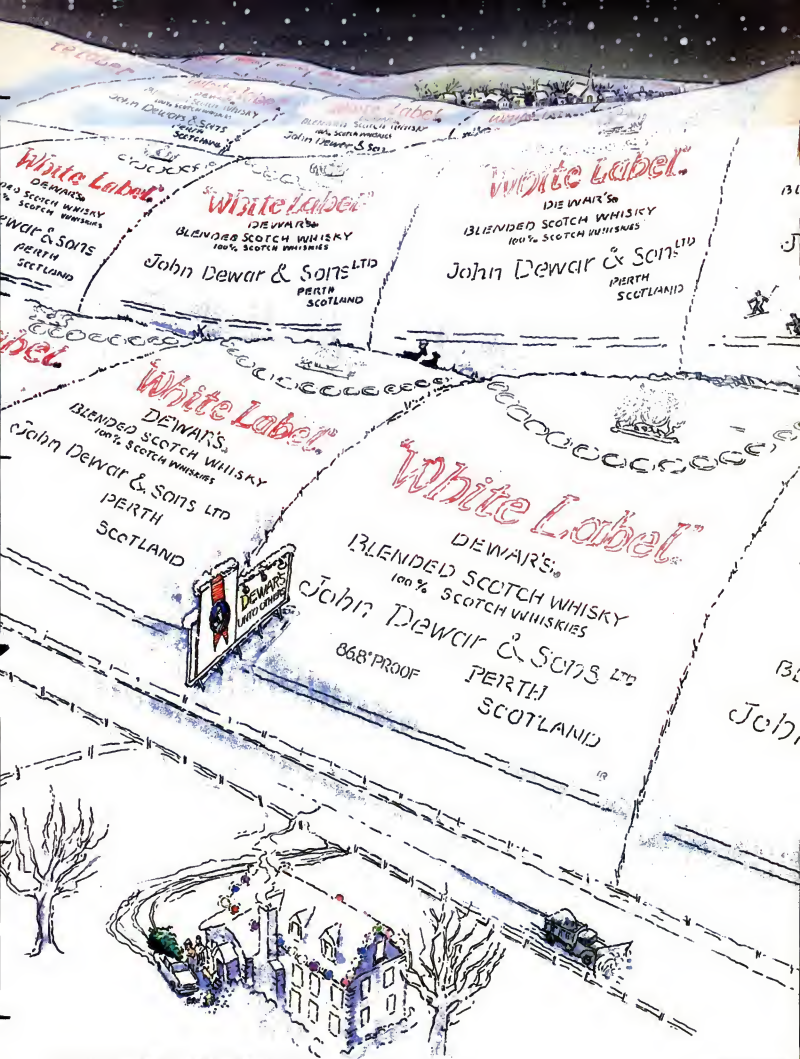 White Label
White Label
BLENDED SCOTCH WHISKY
100% SCOTCH WHISKIES
John Dewar & Sons
PERTH
SCOTLAND
White Label
BLENDED SCOTCH WHISKY
100% SCOTCH WHISKIES
John Dewar & Sons
"White Label"
DEWAR'S
DED SCOTCH WHISKY
% SCOTCH WHISKIES
ewar & Sons
PERTH
SCOTLAND
"White Label"
DEWAR'S®
BLENDED SCOTCH WHISKY
100% SCOTCH WHISKIES
John Dewar & Sons LTD
PERTH
SCOTLAND
"White Label"
DEWAR'S®
BLENDED SCOTCH WHISKY
100% SCOTCH WHISKIES
John Dewar & Sons LTD
PERTH
SCOTLAND
BL
J
abel"
"White Label"
DEWAR'S®
BLENDED SCOTCH WHISKY
100% SCOTCH WHISKIES
John Dewar & Sons LTD
PERTH
SCOTLAND
"White Label"
DEWAR'S®
BLENDED SCOTCH WHISKY
100% SCOTCH WHISKIES
John Dewar & Sons LTD
86.8° PROOF
PERTH
SCOTLAND
DEWAR'S
UNTO OTHERS
BL
John